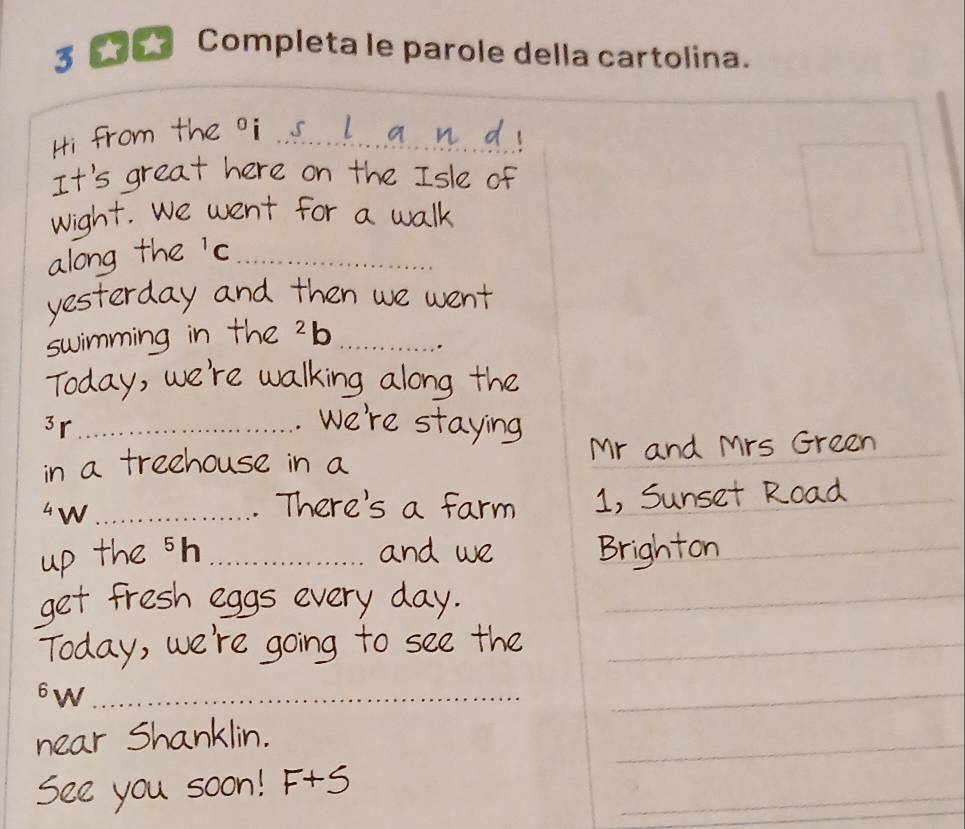 3 Completa le parole della cartolina.
Hi from the ⁰i s l a n d!
It's great here on the Isle of
Wight. We went for a walk
along the ¹c..................
yesterday and then we went
swimming in the ²b..........
Today, we're walking along the
³r...................... We're staying
in a treehouse in a
⁴w................. There's a farm
up the ⁵h................ and we
get fresh eggs every day.
Today, we're going to see the
⁶w............................................
near Shanklin.
See you soon! F+S
Mr and Mrs Green
1, Sunset Road
Brighton